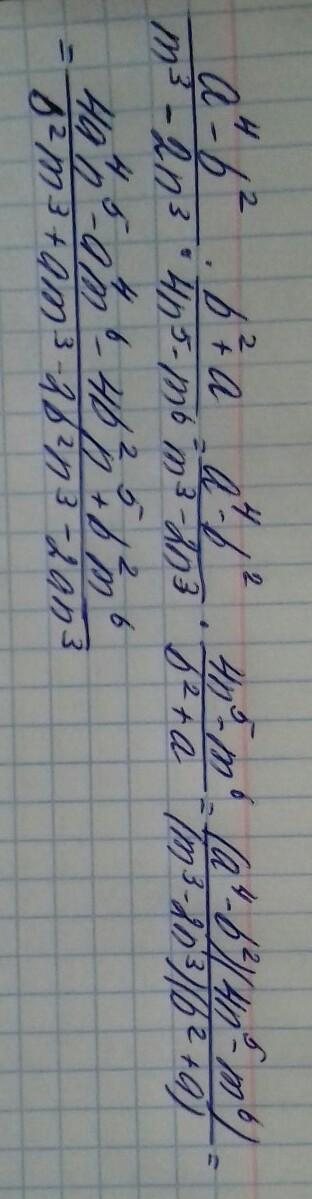 \frac{a^4 - b^2}{m^3 - 2n^3} : \frac{b^2 + a}{4n^5 - m^6} = \frac{a^4 - b^2}{m^3 - 2n^3} \cdot \frac{4n^5 - m^6}{b^2 + a} = \frac{(a^4 - b^2)(4n^5 - m^6)}{(m^3 - 2n^3)(b^2 + a)} =
= \frac{4a^4n^5 - a^4m^6 - 4b^2n^5 + b^2m^6}{b^2m^3 + am^3 - 2b^2n^3 - 2an^3}